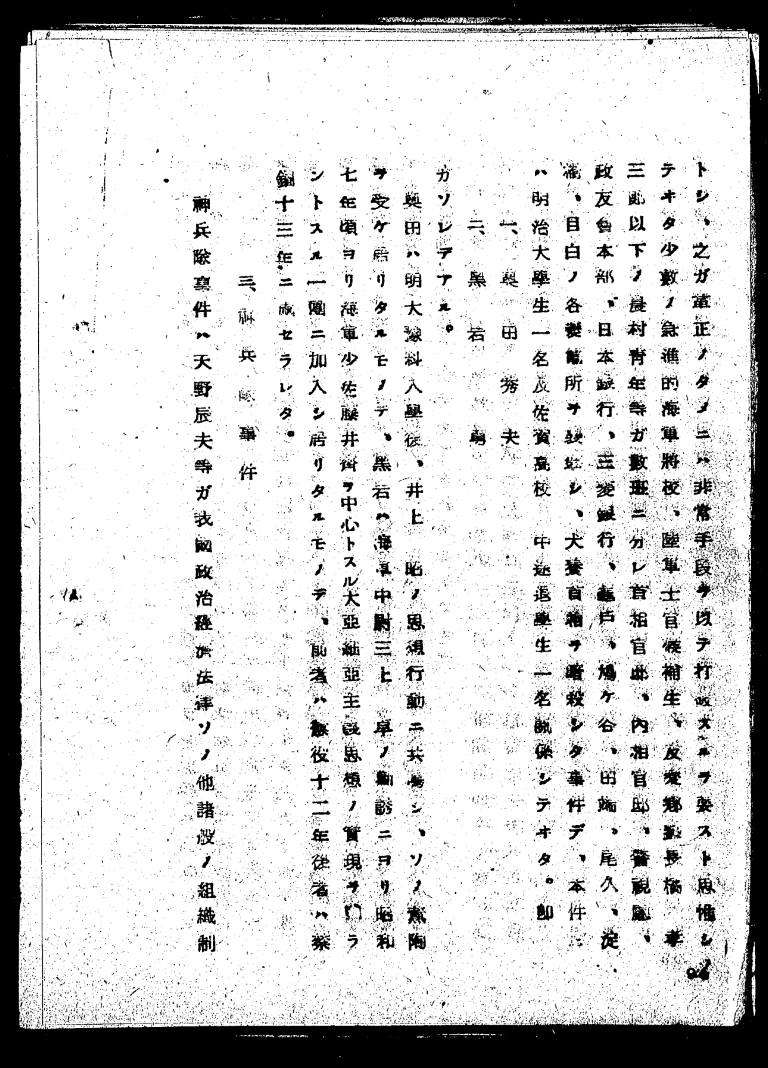 トシ、之ガ革正ノタメニハ非常手段ヲ以テ打破スルヲ要スト思惟シ
テオタ少數ノ急進的海軍將校、陸軍士官候補生、及愛鄕塾長橘　孝
三郎以下ノ農村靑年等ガ數班ニ分レ首相官邸、內相官邸、警視廳、
政友會本部、日本銀行、三菱銀行、龜戶、鳩ケ谷、田端、尾久、淀
橋、目白ノ各變電所ヲ襲擊シ、犬養首相ヲ暗殺シタ事件デ、本件
ハ明治大學生一名及佐賀高校　中途退學生一名關係シテオタ。卽
一、奧田秀夫
二、黑岩　勇
ガソレデアル。
奧田ハ明大豫科入學後、井上　昭ノ思想行動ニ共鳴シ、ソノ薰陶
ヲ受ケ居リタルモノデ、黑岩ハ海軍中尉三上　卓ノ勸誘ニヨリ昭和
七年頃ヨリ海軍少佐藤井齊ヲ中心トスル大亞細亞主義思想ノ實現ヲ圖ラ
ントスル一團ニ加入シ居リタルモノデ、前者ハ懲役十二年後者ハ禁
錮十三年ニ處セラレタ。
三、神兵隊事件
神兵隊事件ハ天野辰夫等ガ我國政治經濟法律ソノ他諸般ノ組織制